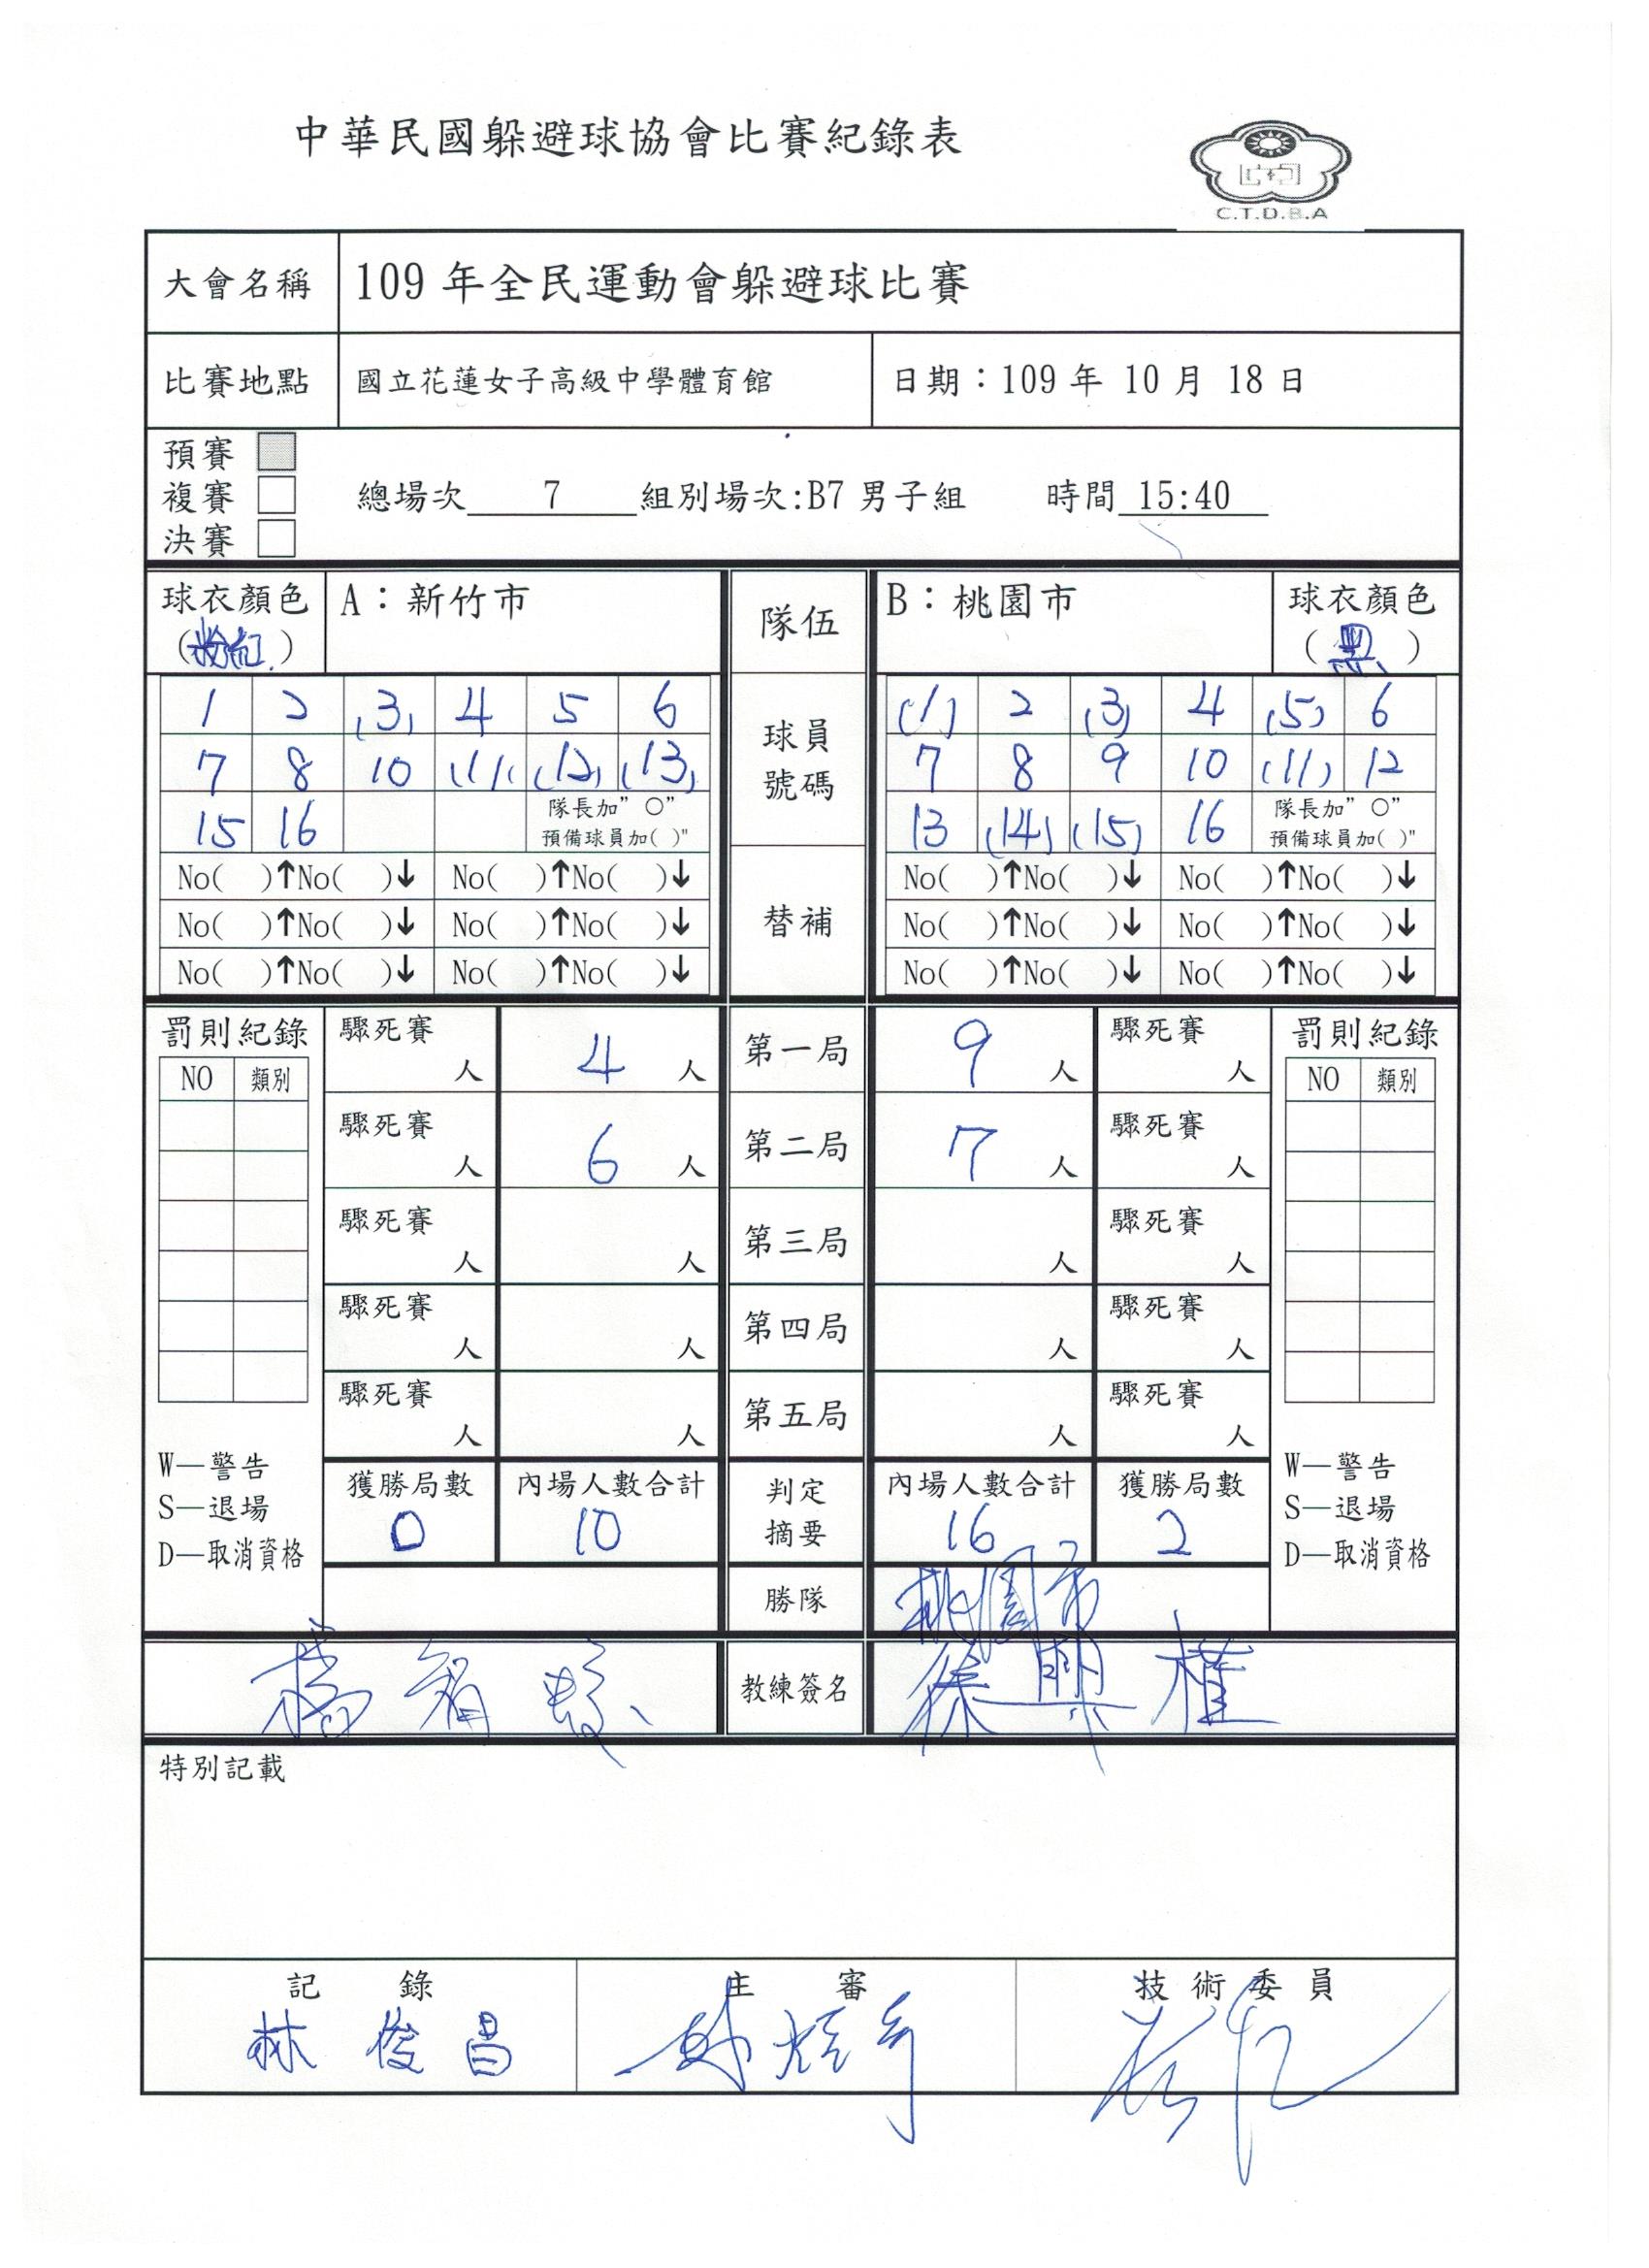 中華民國躲避球協會比賽紀錄表
C.T.D.B.A
大會名稱 109 年全民運動會躲避球比賽
比賽地點 國立花蓮女子高級中學體育館 日期：109 年 10 月 18 日
預賽
複賽 總場次 7 組別場次:B7 男子組 時間 15:40
決賽
球衣顏色 A：新竹市 隊伍 B：桃園市 球衣顏色
(粉紅) (黑)
1 2 (3) 4 5 6 球員 (1) 2 (3) 4 (5) 6
7 8 10 (11) (12) (13) 號碼 7 8 9 10 (11) 12
15 16 隊長加" ○" 13 (14) (15) 16 隊長加" ○"
預備球員加( )" 預備球員加( )"
No( )↑No( )↓ No( )↑No( )↓ No( )↑No( )↓ No( )↑No( )↓
No( )↑No( )↓ No( )↑No( )↓ 替補 No( )↑No( )↓ No( )↑No( )↓
No( )↑No( )↓ No( )↑No( )↓ No( )↑No( )↓ No( )↑No( )↓
罰則紀錄 驟死賽 人 4 人 第一局 9 人 驟死賽 人 罰則紀錄
NO 類別 NO 類別
驟死賽 人 6 人 第二局 7 人 驟死賽 人
驟死賽 人 人 第三局 人 驟死賽 人
驟死賽 人 人 第四局 人 驟死賽 人
驟死賽 人 人 第五局 人 驟死賽 人
W—警告 獲勝局數 內場人數合計 判定 內場人數合計 獲勝局數 W—警告
S—退場 0 10 摘要 16 2 S—退場
D—取消資格 D—取消資格
勝隊 桃園市
教練簽名 徐興權
特別記載
記 錄 主 審 技術委員
林俊昌